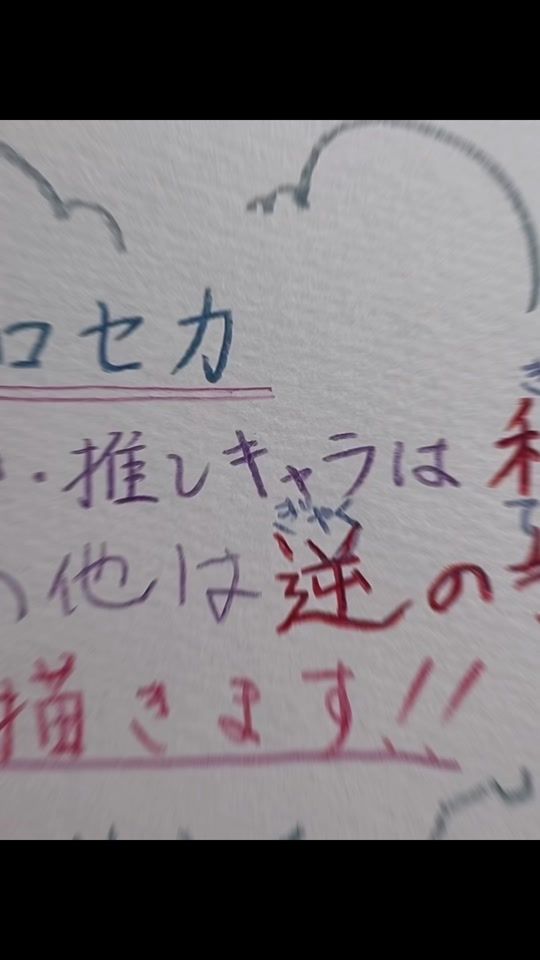 ロセカ
・推しキャラは
ぎゃく
他は逆の
描きます!!